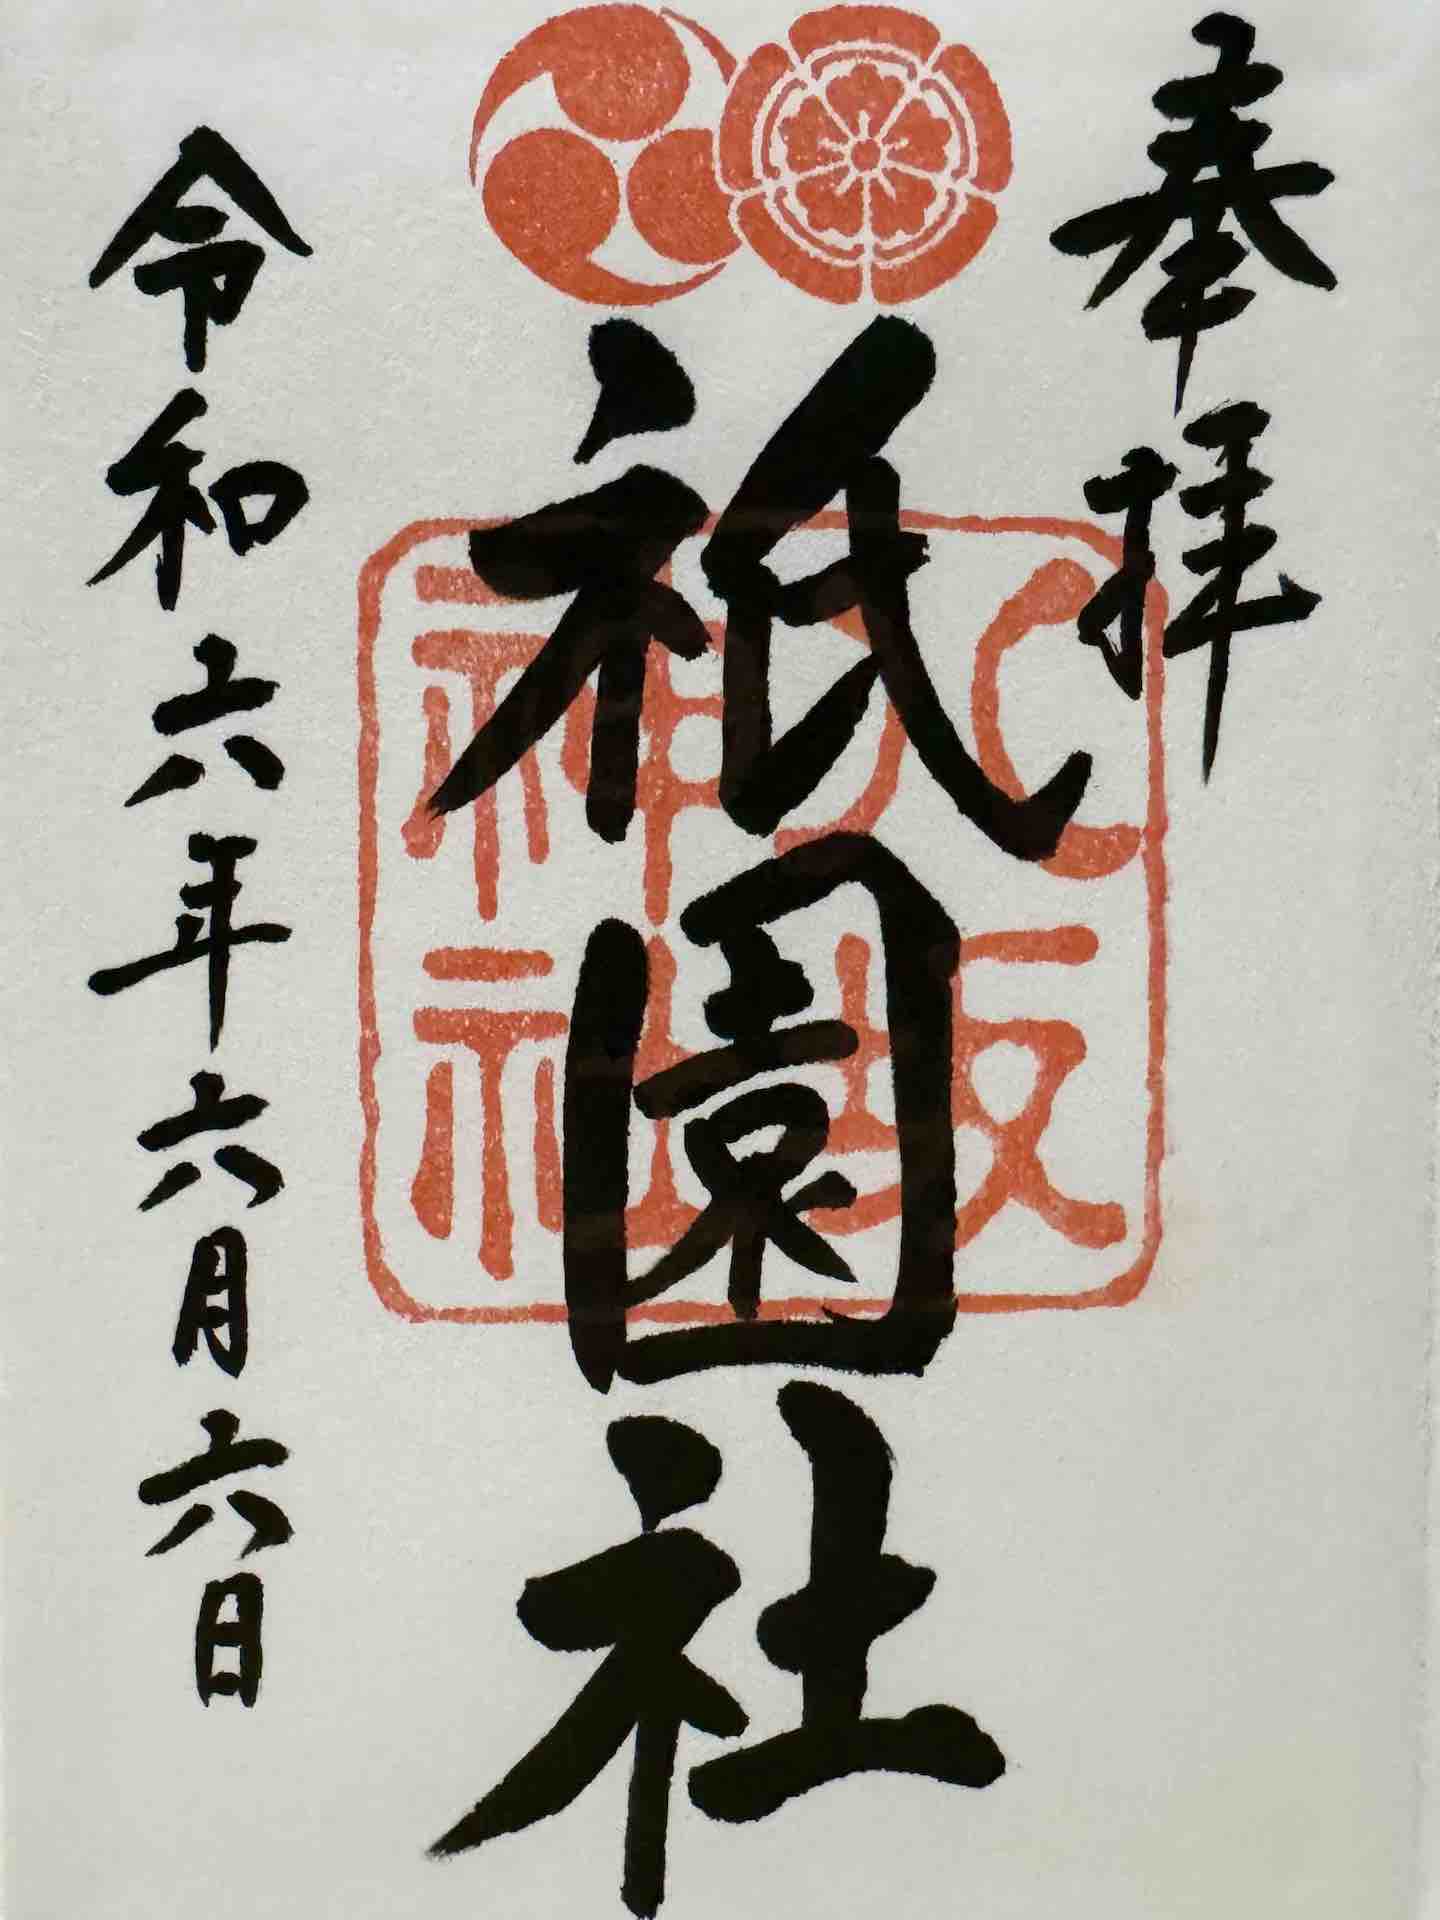 奉拝
祇園社
八坂
神社
令和六年六月六日